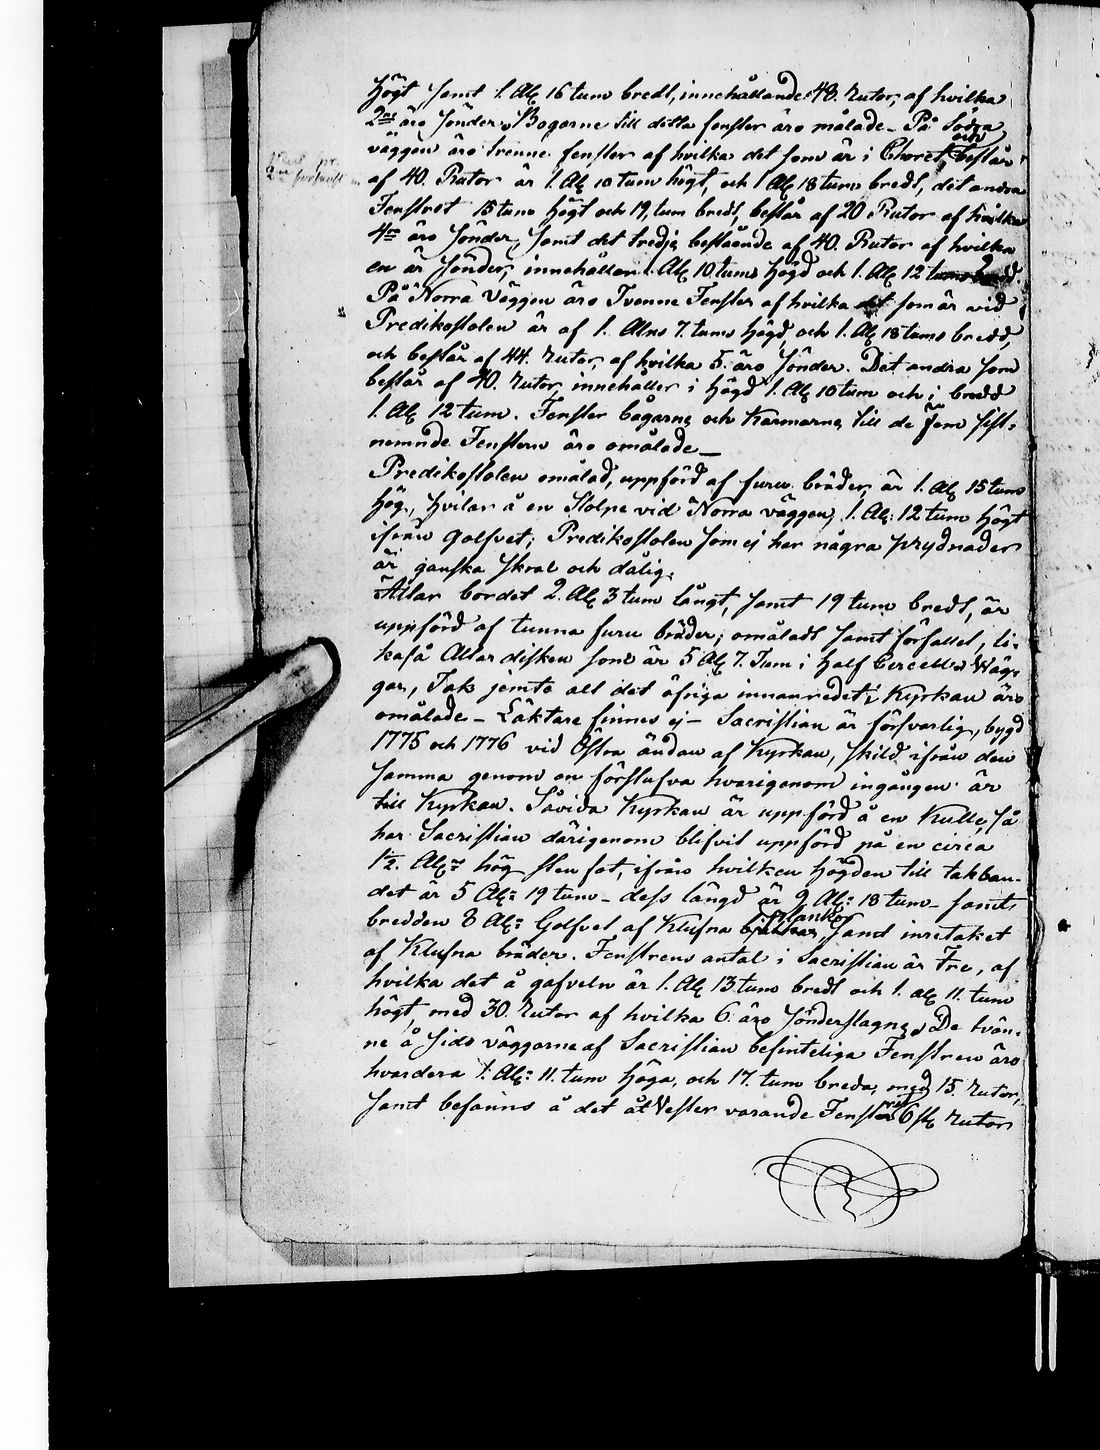 Högt samt 1. Alr 16 tum bredt, innehållande 48. Rutor, af hvilka
2ne äro sönder. Bogarne till detta fenster äro målade – På Södra
väggen äro trenne fenster af hvilka det som är i Choret, och består
af 40. Rutor är 1. Alr 10 tum högt, och 1 Alr 18 tum bredt, det andra
Fenstret 15 tum högt och 19, tum bredt, består af 20 Rutor af hvilka
4ra äro sönder, samt det tredje bestående af 40. Rutor af hvilka
en är sönder, innehåller 1. Alr 10. tums högd och 1. Alr 12 tums bredd.
På Norra Väggen äro Tvenne Fenster af hvilka det som är vid
Predikostolen är af 1. Alns 7. tums högd, och 1. Alr 18 tums bredd,
och består af 44. Rutor, af hvilka 5. äro sönder. Det andra som
består af 40. Rutor, innehåller i högd 1. Alr 10 tum och i bredd
1. Alr 12 tum. Fenster bågarne och Karmarne till de fem sist-
nemnde Fenstern äro omålade –
Predikostolen omålad, uppförd af furu bräder, är 1. Alr 15 tum
hög, hvilar å en Stolpe vid Norra väggen, 1. Alr: 12 tum högt
ifrån golfvet; Predikostolen som ej har några prydnader
är ganska skral och dålig.
Altar bordet 2. Alr 3 tum långt, samt 19 tum bredt, är
uppförd af tunna furu bräder; omåladt samt förfallet, li-
kaså Altar disken som är 5 Alr 7. Tum i half Circell. Väg-
gar, Tak jemte alt det öfriga innanredet i Kyrkan äro
omålade – Läktare finnes ej – Sacristian är försvarlig, bygd
1775 och 1776 vid Östra ändan af Kyrkan, skild ifrån den
samma genom en förstufva hvarigenom ingången är
till Kyrkan. Såvida Kyrkan är uppförd å en Kulle, så
har Sacristian därigenom blifvit uppförd på en circa
1½. Alr hög stenfot, ifrån hvilken högden till takban-
det är 5 Alr: 19 tum – dess längd är 9 Alr: 18 tum – samt
bredden 8 Alr: Golfvet af Klufna plankor samt inretaket
af Klufna bräder. Fenstrens antal i Sacristian är Tre, af
hvilka det å gafveln är 1. Alr 13 tum bredt och 1. alr 11. tum
högt, med 30. Rutor af hvilka 6. äro sönderslagne. De tvän-
ne å sido väggarne af Sacristian befinteliga Fenstren äro
hvardera 1. Alr: 11. tum höga, och 17. tum breda, med 15. Rutor,
samt befanns å det åt Vester varande Fenstret 6 st Rutor